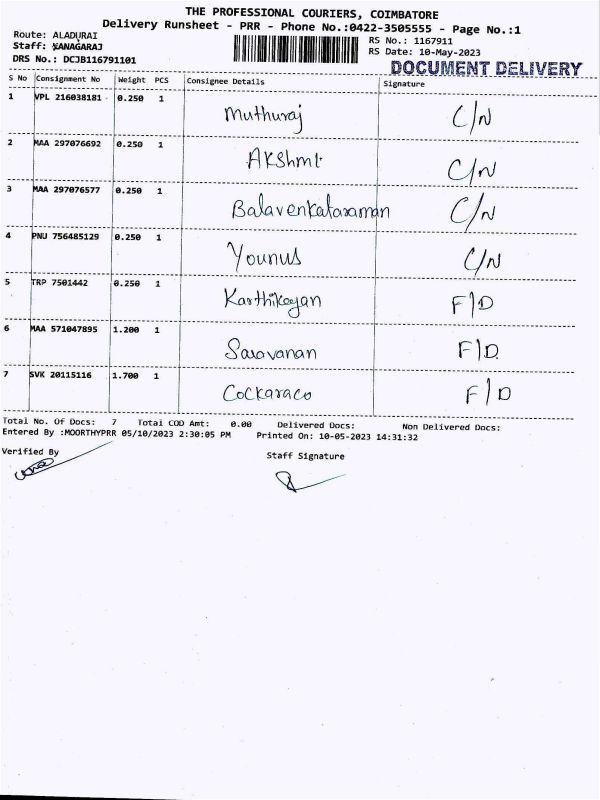 THE PROFESSIONAL COURIERS, COIMBATORE
Delivery Runsheet - PRR - Phone No.:0422-3505555 - Page No.:1
Route: ALADURAI
RS No.: 1167911
Staff: KANAGARAJ
RS Date: 10-May-2023
DRS No.: DCJB116791101
DOCUMENT DELIVERY
S No Consignment No Weight PCS Consignee Details Signature
1 VPL 216038181 0.250 1 Muthuraj C/N
2 MAA 297076692 0.250 1 AKShmt C/N
3 MAA 297076577 0.250 1 Balavenkataraman C/N
4 PNU 756485129 0.250 1 Younus C/N
5 TRP 7501442 0.250 1 Karthikeyan F/D
6 MAA 571047895 1.200 1 Saravanan F/D
7 SVK 20115116 1.700 1 Cockaraco F/D
Total No. Of Docs: 7 Total COD Amt: 0.00 Delivered Docs: Non Delivered Docs:
Entered By :MOORTHYPRR 05/10/2023 2:30:05 PM Printed On: 10-05-2023 14:31:32
Verified By
Staff Signature